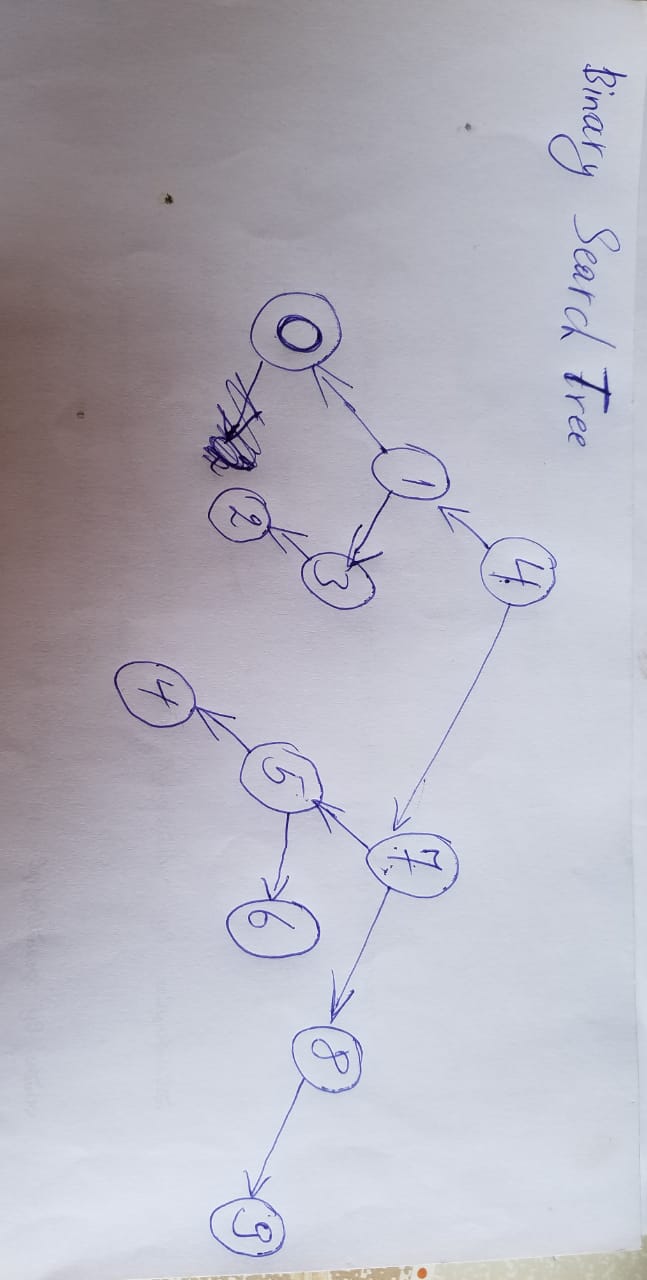 Binary Search Tree
4
1
7
0
3
5
8
2
4
6
9